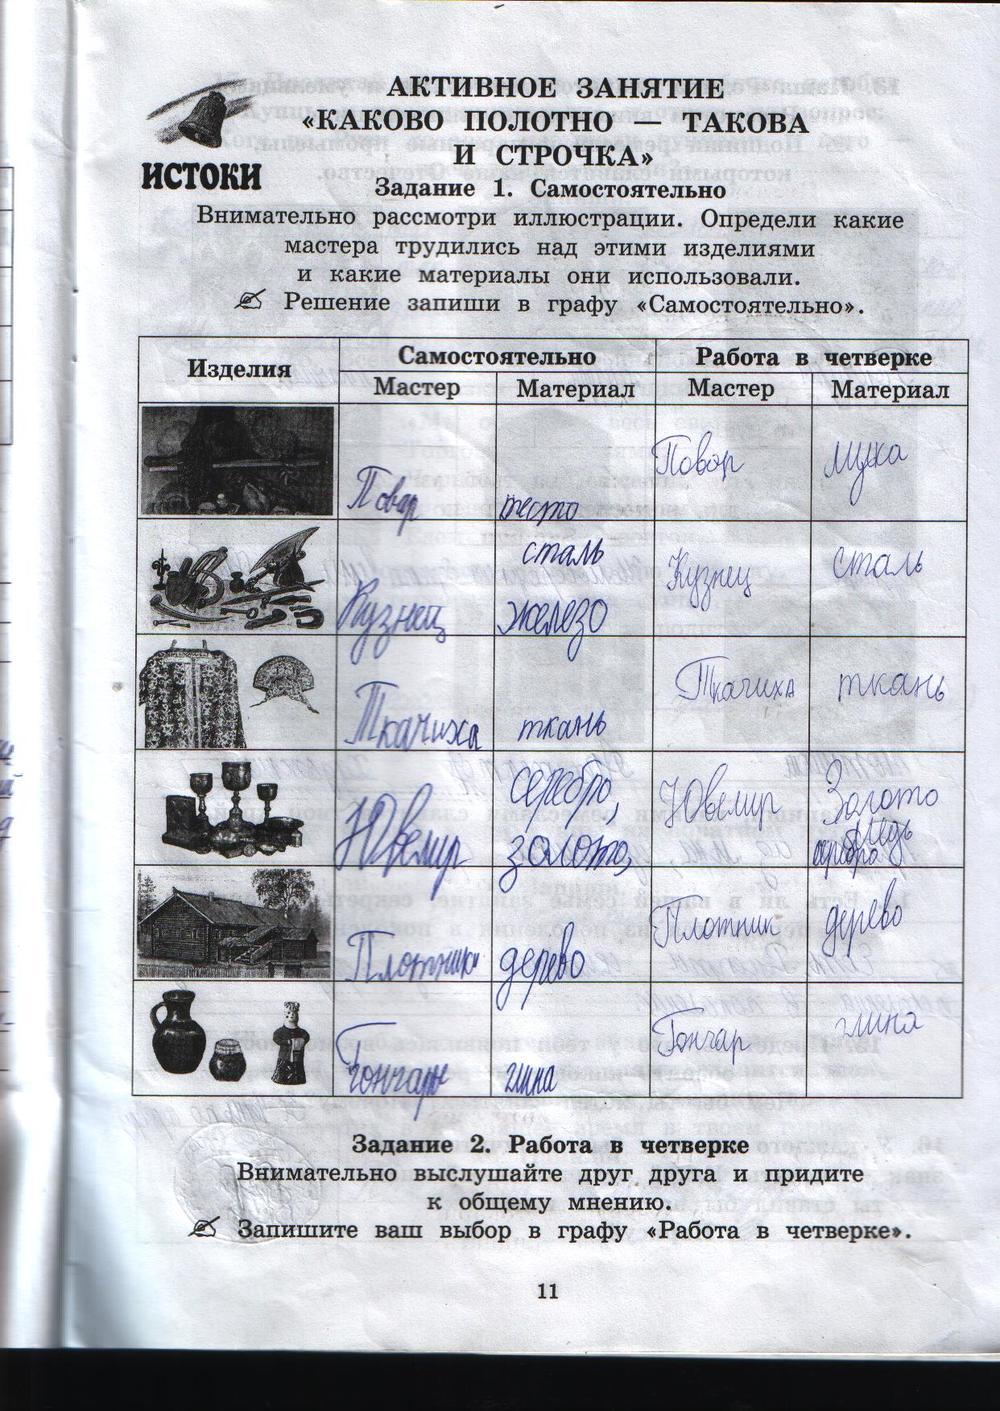 ИСТОКИ
АКТИВНОЕ ЗАНЯТИЕ
«КАКОВО ПОЛОТНО — ТАКОВА
И СТРОЧКА»
Задание 1. Самостоятельно
Внимательно рассмотри иллюстрации. Определи какие
мастера трудились над этими изделиями
и какие материалы они использовали.
Решение запиши в графу «Самостоятельно».
Изделия Самостоятельно Работа в четверке
Мастер Материал Мастер Материал
Повар тесто Повар мука
Кузнец сталь железо Кузнец сталь
Ткачиха ткань Ткачиха ткань
Ювелир серебро, золото, Ювелир Золото медь серебро
Плотник дерево Плотник дерево
Гончар глина Гончар глина
Задание 2. Работа в четверке
Внимательно выслушайте друг друга и придите
к общему мнению.
Запишите ваш выбор в графу «Работа в четверке».
11